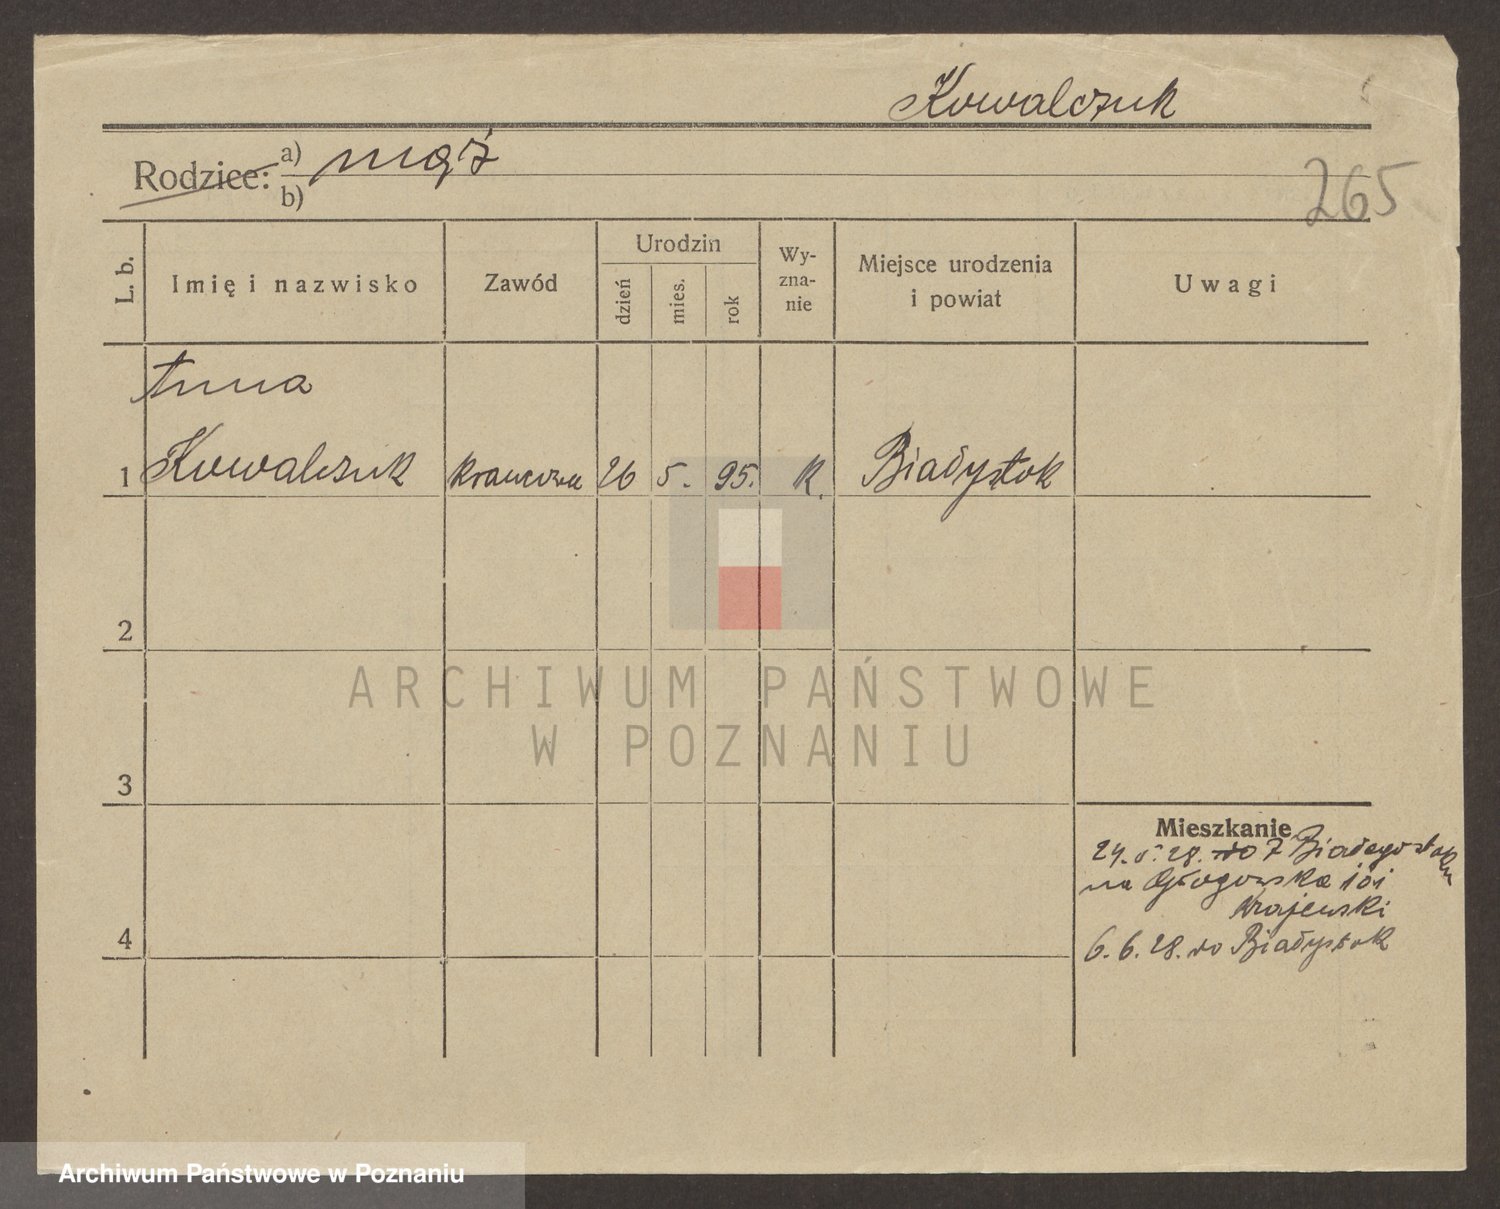 Kowalczuk
Rodzice: a) mąż
b)
265
L. b. Imię i nazwisko Zawód Urodzin dzień mies. rok Wy-zna-nie Miejsce urodzenia i powiat Uwagi
Anna
1 Kowalczuk krawcowa 26 5. 95. k. Białystok
2
ARCHIWUM PAŃSTWOWE
W POZNANIU
3
Mieszkanie
24. 5. 28. do z Białegostoku
na Głogowska 101
Krajewski
4
6. 6. 28. do Białystok
Archiwum Państwowe w Poznaniu